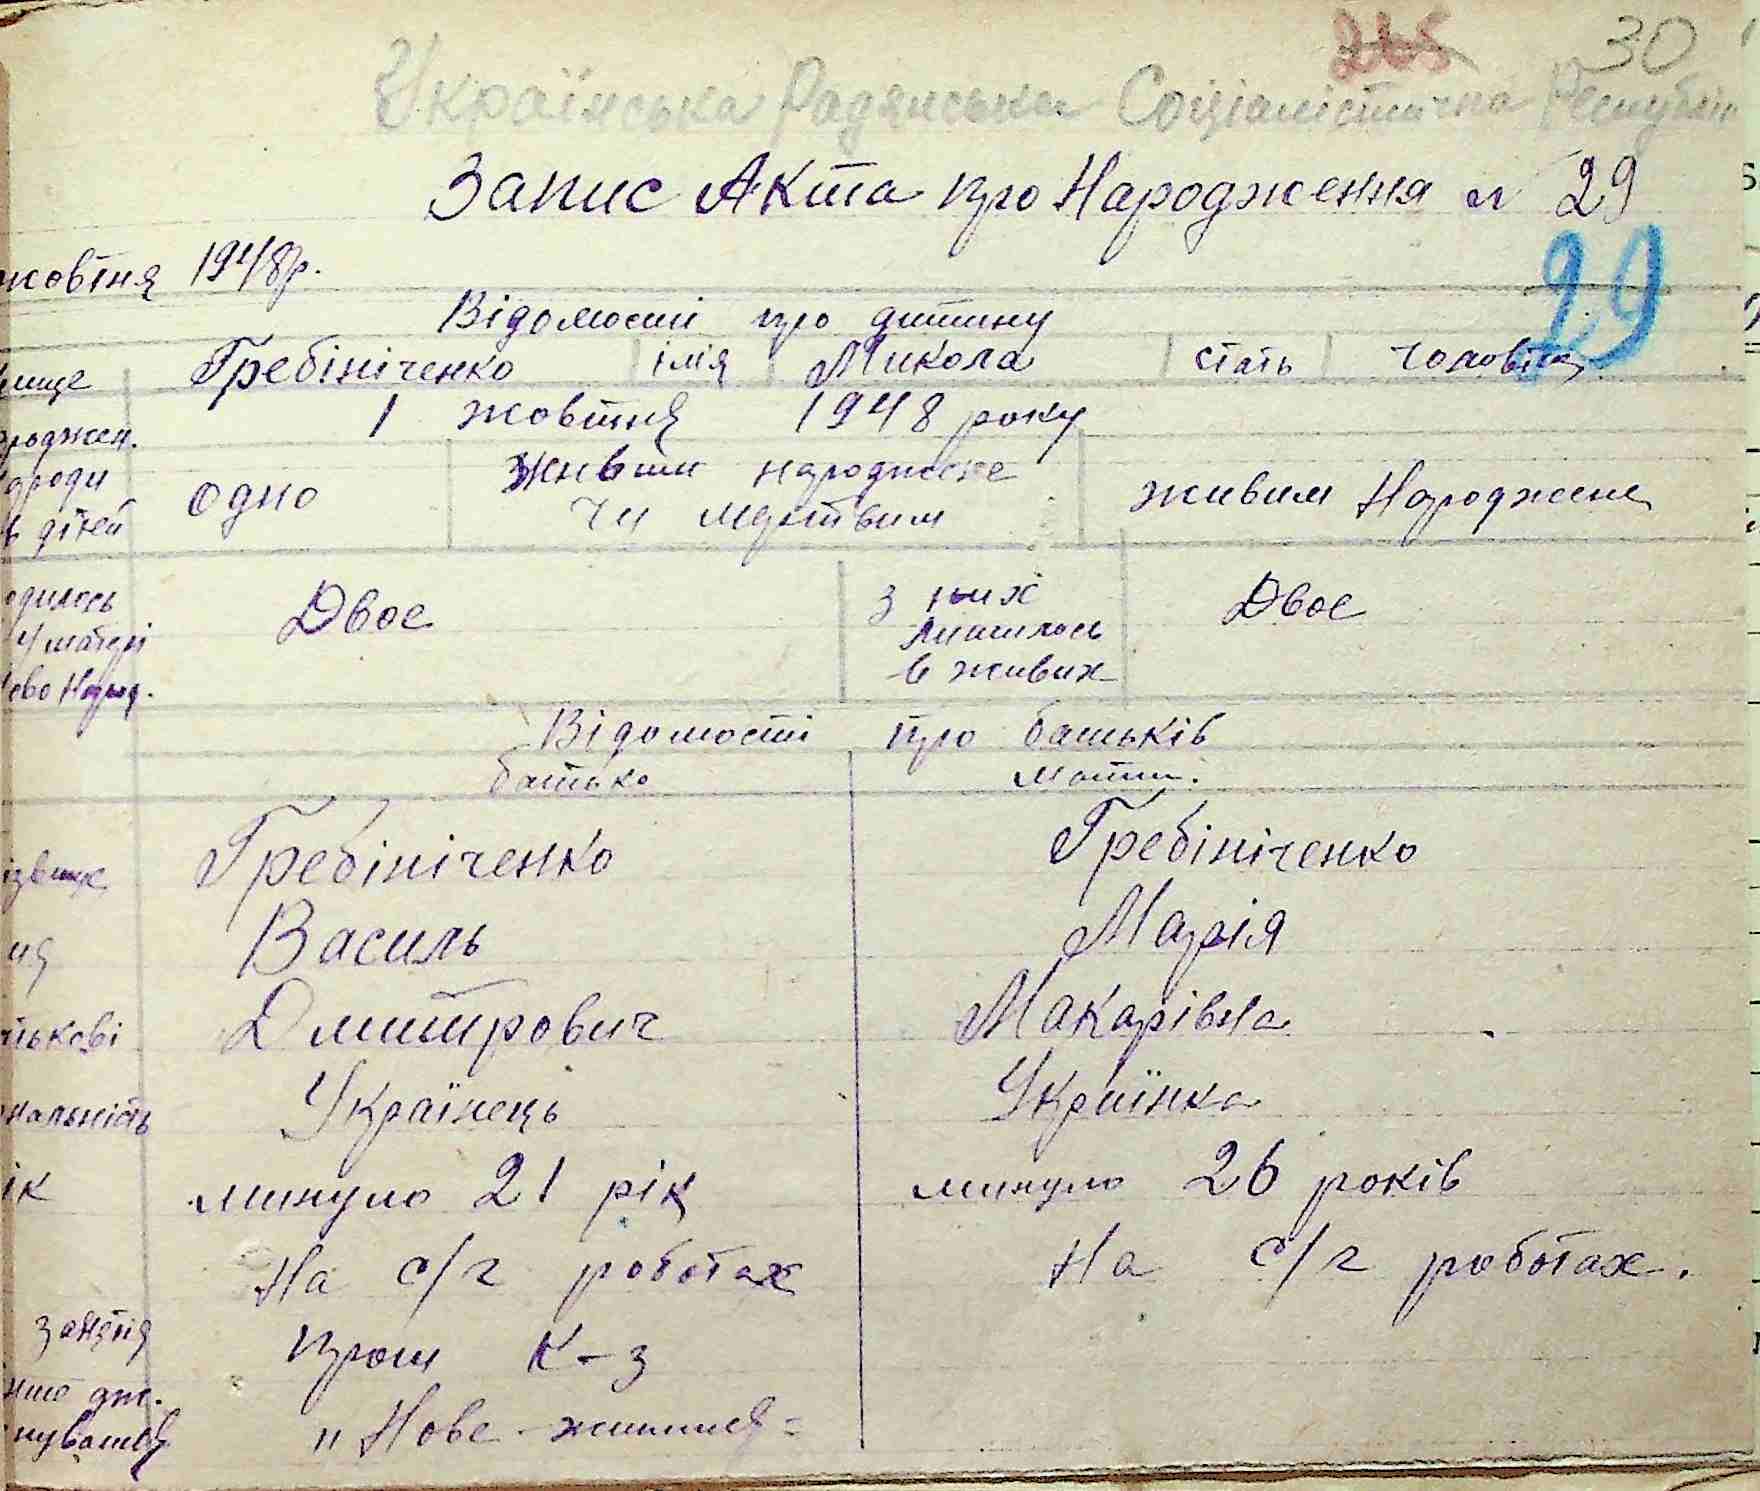 265 30
Українська Радянська Соціалістична Республік
Запис Акта про Народження № 29
жовтня 1948р.
29
Відомости про дитину
Гребініченко імія Микола стать чоловіча
1 жовтня 1948 року
роджен.
в дітей одно живим народжене чи мертвим живим Народжене
одилось у матері Двоє з них лишилось в живих Двоє
Відомості про батьків
батько мати.
Гребініченко Гребініченко
Василь Марія
Дмитрович Макарівна
нальність Українець Українка
ік минуло 21 рік минуло 26 років
На с/г роботах На с/г роботах.
заняття К-з
"Нове-життя"